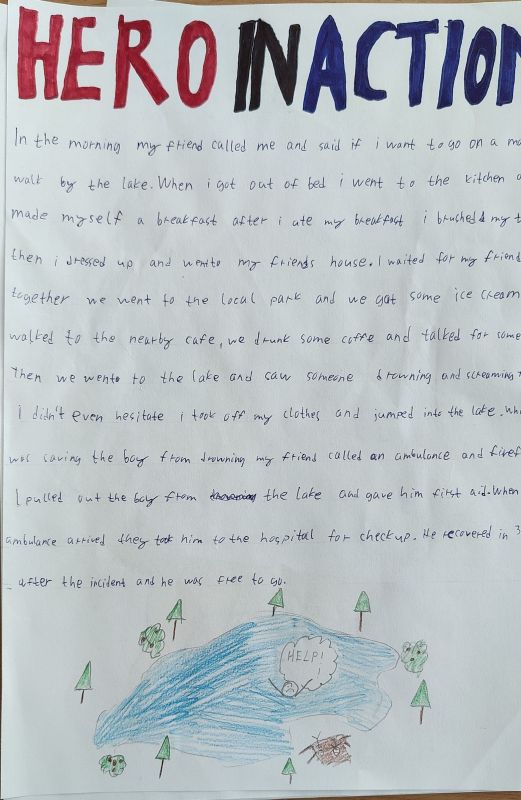 HERO IN ACTION
In the morning my friend called me and said if i want to go on a
walk by the lake. When i got out of bed i went to the kitchen
made myself a breakfast after i ate my breakfast i brushed my
then i dressed up and wento my friends house. I waited for my friend
together we went to the local park and we got some ice cream
walked to the nearby cafe, we drunk some coffe and talked for some
Then we wento to the lake and saw someone drowning and screaming
I didn't even hesitate i took off my clothes and jumped into the lake.
was saving the boy from drowning my friend called an ambulance and
I pulled out the boy from the lake and gave him first aid. When
ambulance arrived they tok him to the hospital for checkup. He recovered in 3
after the incident and he was free to go.
HELP!